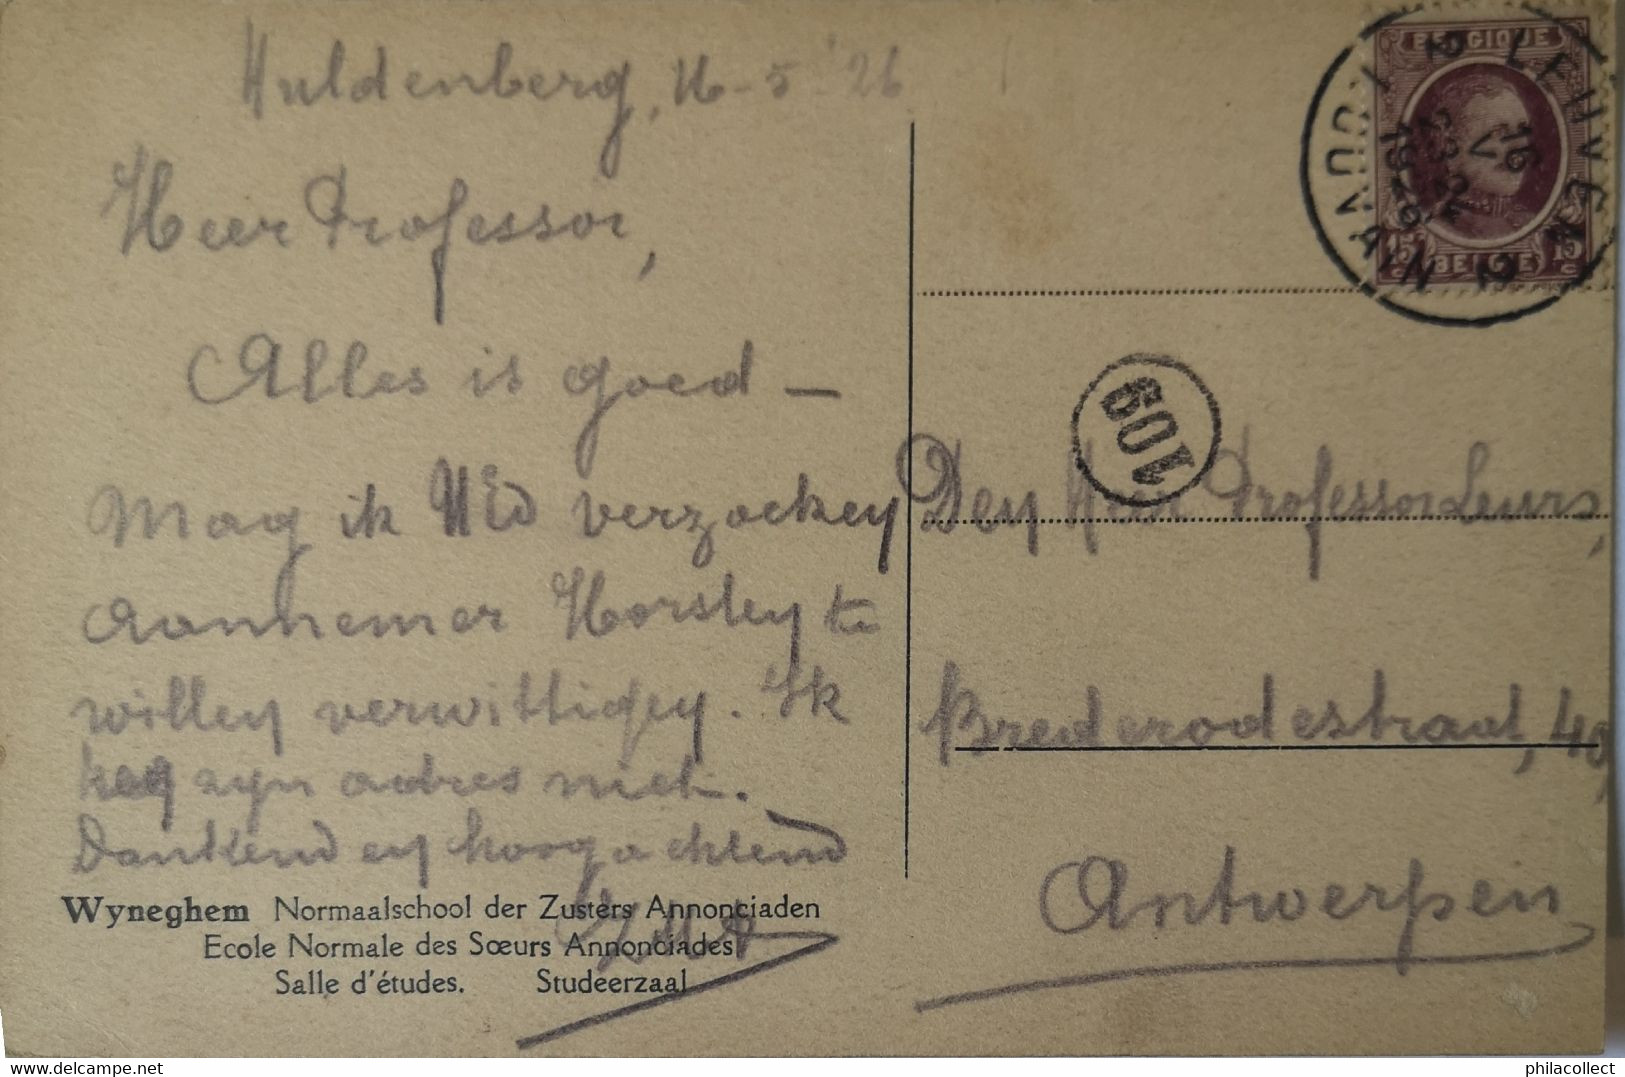 Huldenberg, 16-5-'26
Heer Professor,
Alles is goed —
Mag ik UEd verzoeken
aannemer Horsten te
willen verwittigen. Ik
heb zijn adres niet.
Dankend en hoogachtend
Wyneghem Normaalschool der Zusters Annonciaden
Ecole Normale des Sœurs Annonciades
Salle d'études. Studeerzaal
BELGIQUE
15 c 15 c
BELGIE
LEUVEN 2
16 V 23-24 1926
LOUVAIN 2
109
Den Heer Professor Leurs,
Brederodestraat, 49,
Antwerpen
www.delcampe.net
philacollect